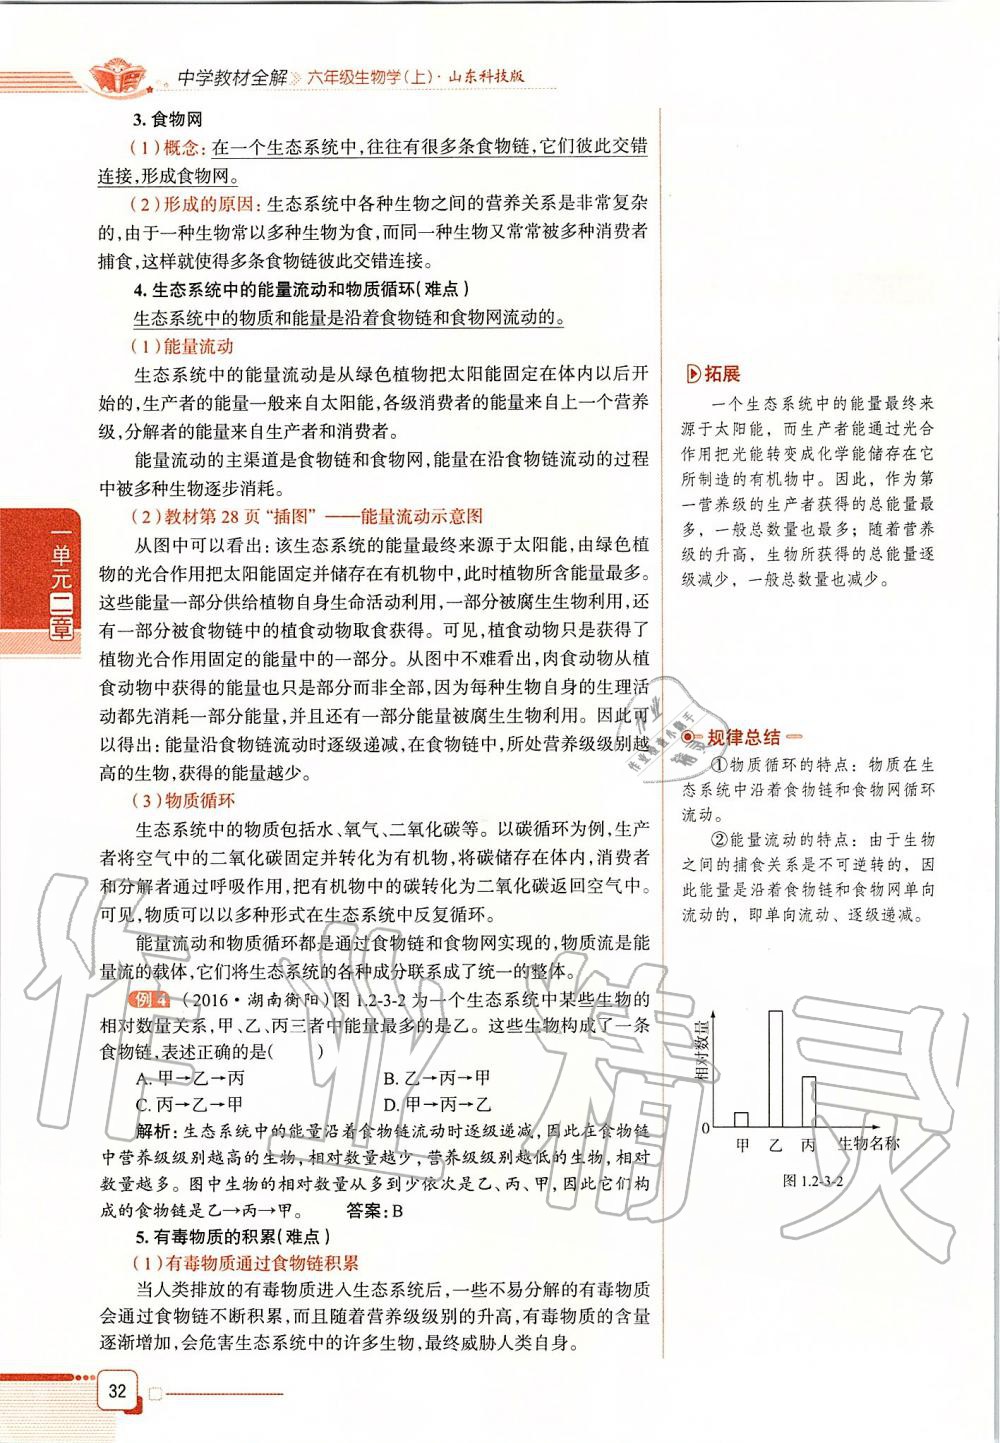 中学教材全解 六年级生物学(上)·山东科技版
3. 食物网
(1)概念:在一个生态系统中,往往有很多条食物链,它们彼此交错
连接,形成食物网。
(2)形成的原因:生态系统中各种生物之间的营养关系是非常复杂
的,由于一种生物常以多种生物为食,而同一种生物又常常被多种消费者
捕食,这样就使得多条食物链彼此交错连接。
4. 生态系统中的能量流动和物质循环(难点)
生态系统中的物质和能量是沿着食物链和食物网流动的。
(1)能量流动
生态系统中的能量流动是从绿色植物把太阳能固定在体内以后开
始的,生产者的能量一般来自太阳能,各级消费者的能量来自上一个营养
级,分解者的能量来自生产者和消费者。
能量流动的主渠道是食物链和食物网,能量在沿食物链流动的过程
中被多种生物逐步消耗。
(2)教材第 28 页“插图”——能量流动示意图
从图中可以看出:该生态系统的能量最终来源于太阳能,由绿色植
物的光合作用把太阳能固定并储存在有机物中,此时植物所含能量最多。
这些能量一部分供给植物自身生命活动利用,一部分被腐生生物利用,还
有一部分被食物链中的植食动物取食获得。可见,植食动物只是获得了
植物光合作用固定的能量中的一部分。从图中不难看出,肉食动物从植
食动物中获得的能量也只是部分而非全部,因为每种生物自身的生理活
动都先消耗一部分能量,并且还有一部分能量被腐生生物利用。因此可
以得出:能量沿食物链流动时逐级递减,在食物链中,所处营养级级别越
高的生物,获得的能量越少。
(3)物质循环
生态系统中的物质包括水、氧气、二氧化碳等。以碳循环为例,生产
者将空气中的二氧化碳固定并转化为有机物,将碳储存在体内,消费者
和分解者通过呼吸作用,把有机物中的碳转化为二氧化碳返回空气中。
可见,物质可以以多种形式在生态系统中反复循环。
能量流动和物质循环都是通过食物链和食物网实现的,物质流是能
量流的载体,它们将生态系统的各种成分联系成了统一的整体。
例 4 (2016·湖南衡阳)图 1.2-3-2 为一个生态系统中某些生物的
相对数量关系,甲、乙、丙三者中能量最多的是乙。这些生物构成了一条
食物链,表述正确的是(  )
A. 甲→乙→丙 B. 乙→丙→甲
C. 丙→乙→甲 D. 甲→丙→乙
解析:生态系统中的能量沿着食物链流动时逐级递减,因此在食物链
中营养级级别越高的生物,相对数量越少,营养级级别越低的生物,相对
数量越多。图中生物的相对数量从多到少依次是乙、丙、甲,因此它们构
成的食物链是乙→丙→甲。 答案:B
5. 有毒物质的积累(难点)
(1)有毒物质通过食物链积累
当人类排放的有毒物质进入生态系统后,一些不易分解的有毒物质
会通过食物链不断积累,而且随着营养级级别的升高,有毒物质的含量
逐渐增加,会危害生态系统中的许多生物,最终威胁人类自身。
拓展
一个生态系统中的能量最终来
源于太阳能,而生产者能通过光合
作用把光能转变成化学能储存在它
所制造的有机物中。因此,作为第
一营养级的生产者获得的总能量最
多,一般总数量也最多;随着营养
级的升高,生物所获得的总能量逐
级减少,一般总数量也减少。
规律总结
①物质循环的特点:物质在生
态系统中沿着食物链和食物网循环
流动。
②能量流动的特点:由于生物
之间的捕食关系是不可逆转的,因
此能量是沿着食物链和食物网单向
流动的,即单向流动、逐级递减。
相对数量
0 甲 乙 丙 生物名称
图 1.2-3-2
一单元二章
32
作业精灵